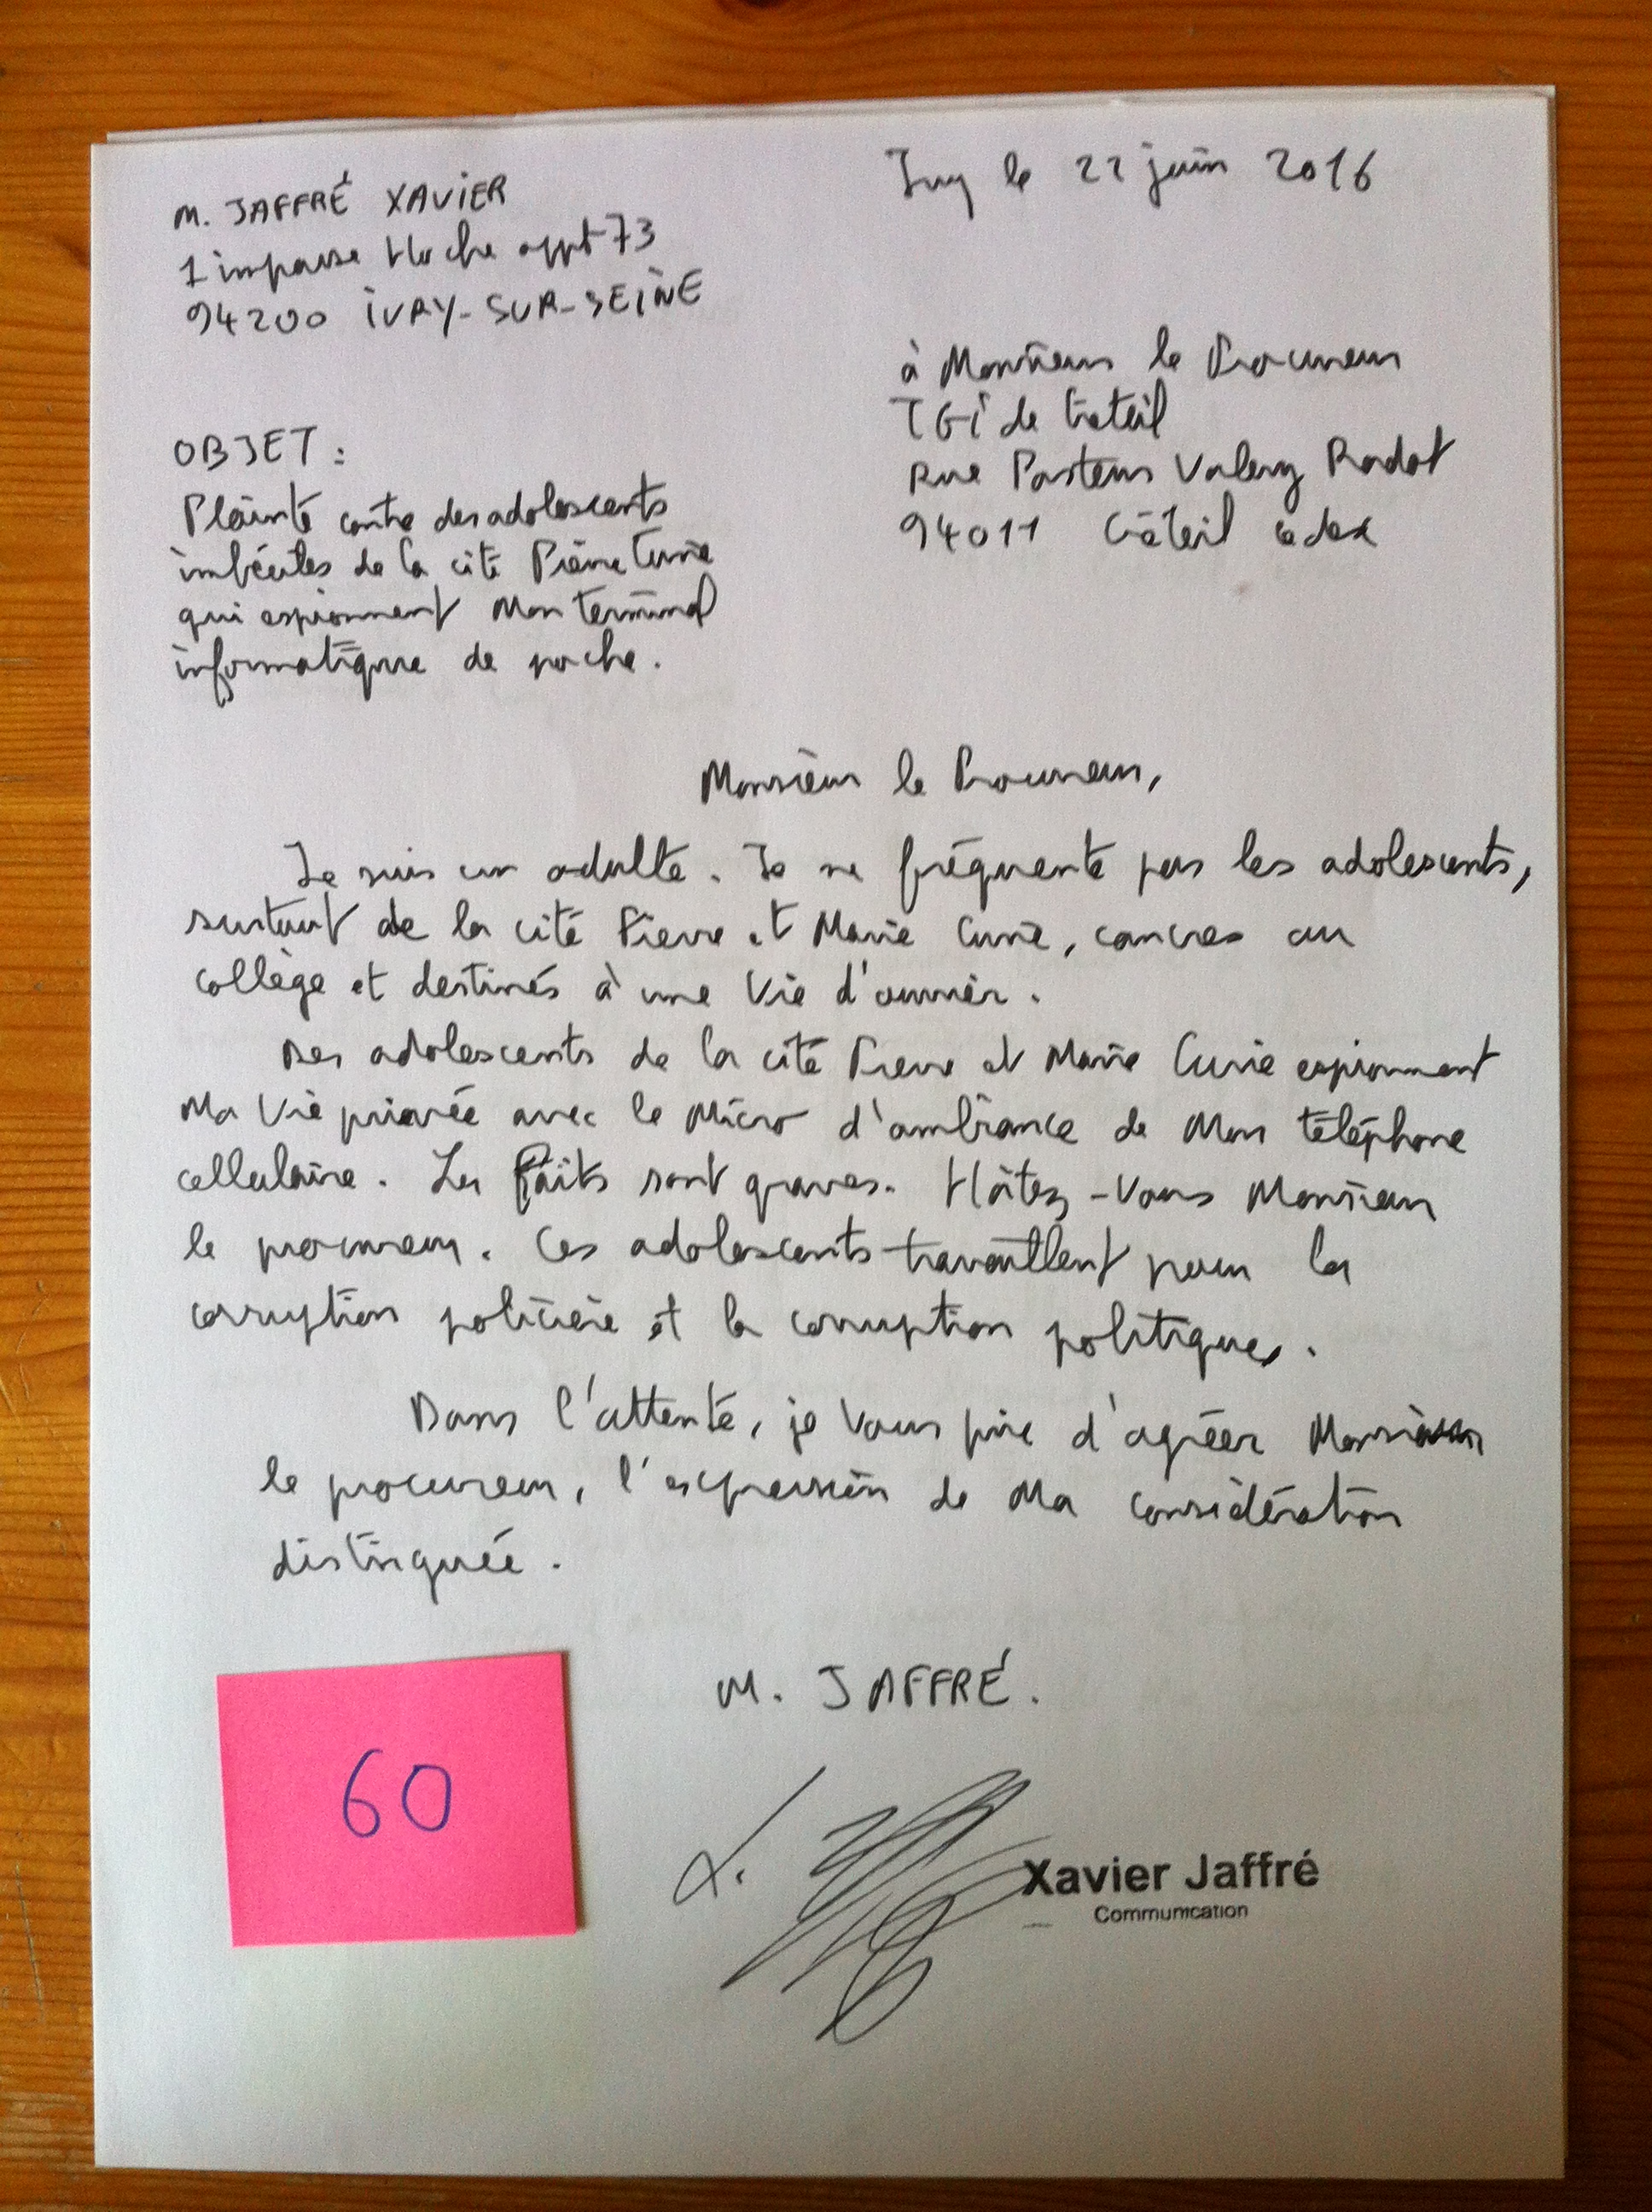 M. JAFFRÉ XAVIER
1 impasse Hoche appt 73
94200 IVRY-SUR-SEINE
Ivry le 22 juin 2016
à Monsieur le Procureur
TGI de Créteil
Rue Pasteur Valery Radot
94011 Créteil cedex
OBJET :
Plainte contre des adolescents
imbéciles de la cité Pierre Curie
qui espionnent Mon terminal
informatique de poche.
Monsieur le Procureur,
Je suis un adulte. Je ne fréquente pas les adolescents,
surtout de la cité Pierre et Marie Curie, cancres au
collège et destinés à une vie d'ouvrier.
Des adolescents de la cité Pierre et Marie Curie espionnent
Ma vie privée avec le Micro d'ambiance de Mon téléphone
cellulaire. Les faits sont graves. Hâtez-vous Monsieur
le procureur. Ces adolescents travaillent pour la
corruption policière et la corruption politique.
Dans l'attente, je vous prie d'agréer Monsieur
le procureur, l'expression de Ma considération
distinguée.
M. JAFFRÉ.
60
Xavier Jaffré
Communication